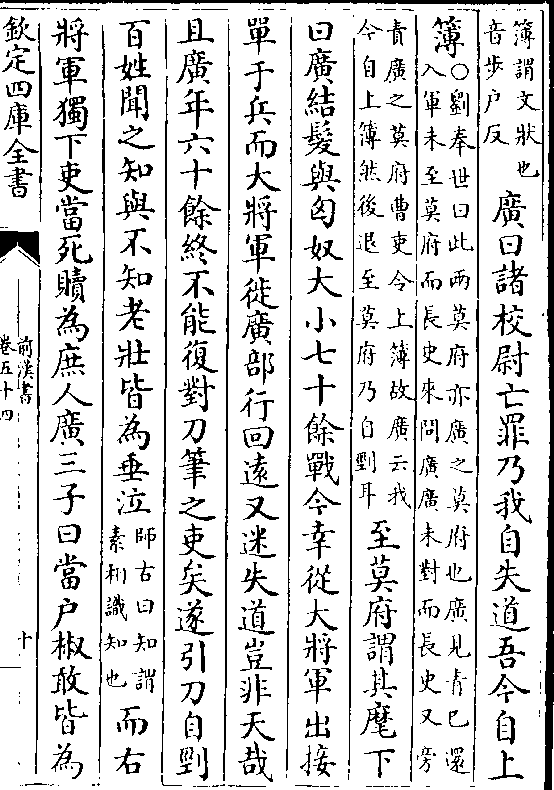 簿謂文狀也
音步戶反
廣曰諸校尉亡罪乃我自失道吾今自上
簿
○劉奉世曰此兩莫府亦廣之莫府也廣見青已還
入軍未至莫府而長史來問廣廣未對而長史又旁
責廣之莫府曹吏令上簿故廣云我
今自上簿然後退至莫府乃自剄耳
至莫府謂其麾下
曰廣結髮與匈奴大小七十餘戰今幸從大將軍出接
單于兵而大將軍徙廣部行回逺又迷失道豈非天哉
且廣年六十餘終不能復對刀筆之吏矣遂引刀自剄
百姓聞之知與不知老壯皆為垂泣
師古曰知謂
素相識知也
而右
將軍獨下吏當死贖為庶人廣三子曰當户椒敢皆為
欽定四庫全書
前漢書
卷五十四
十